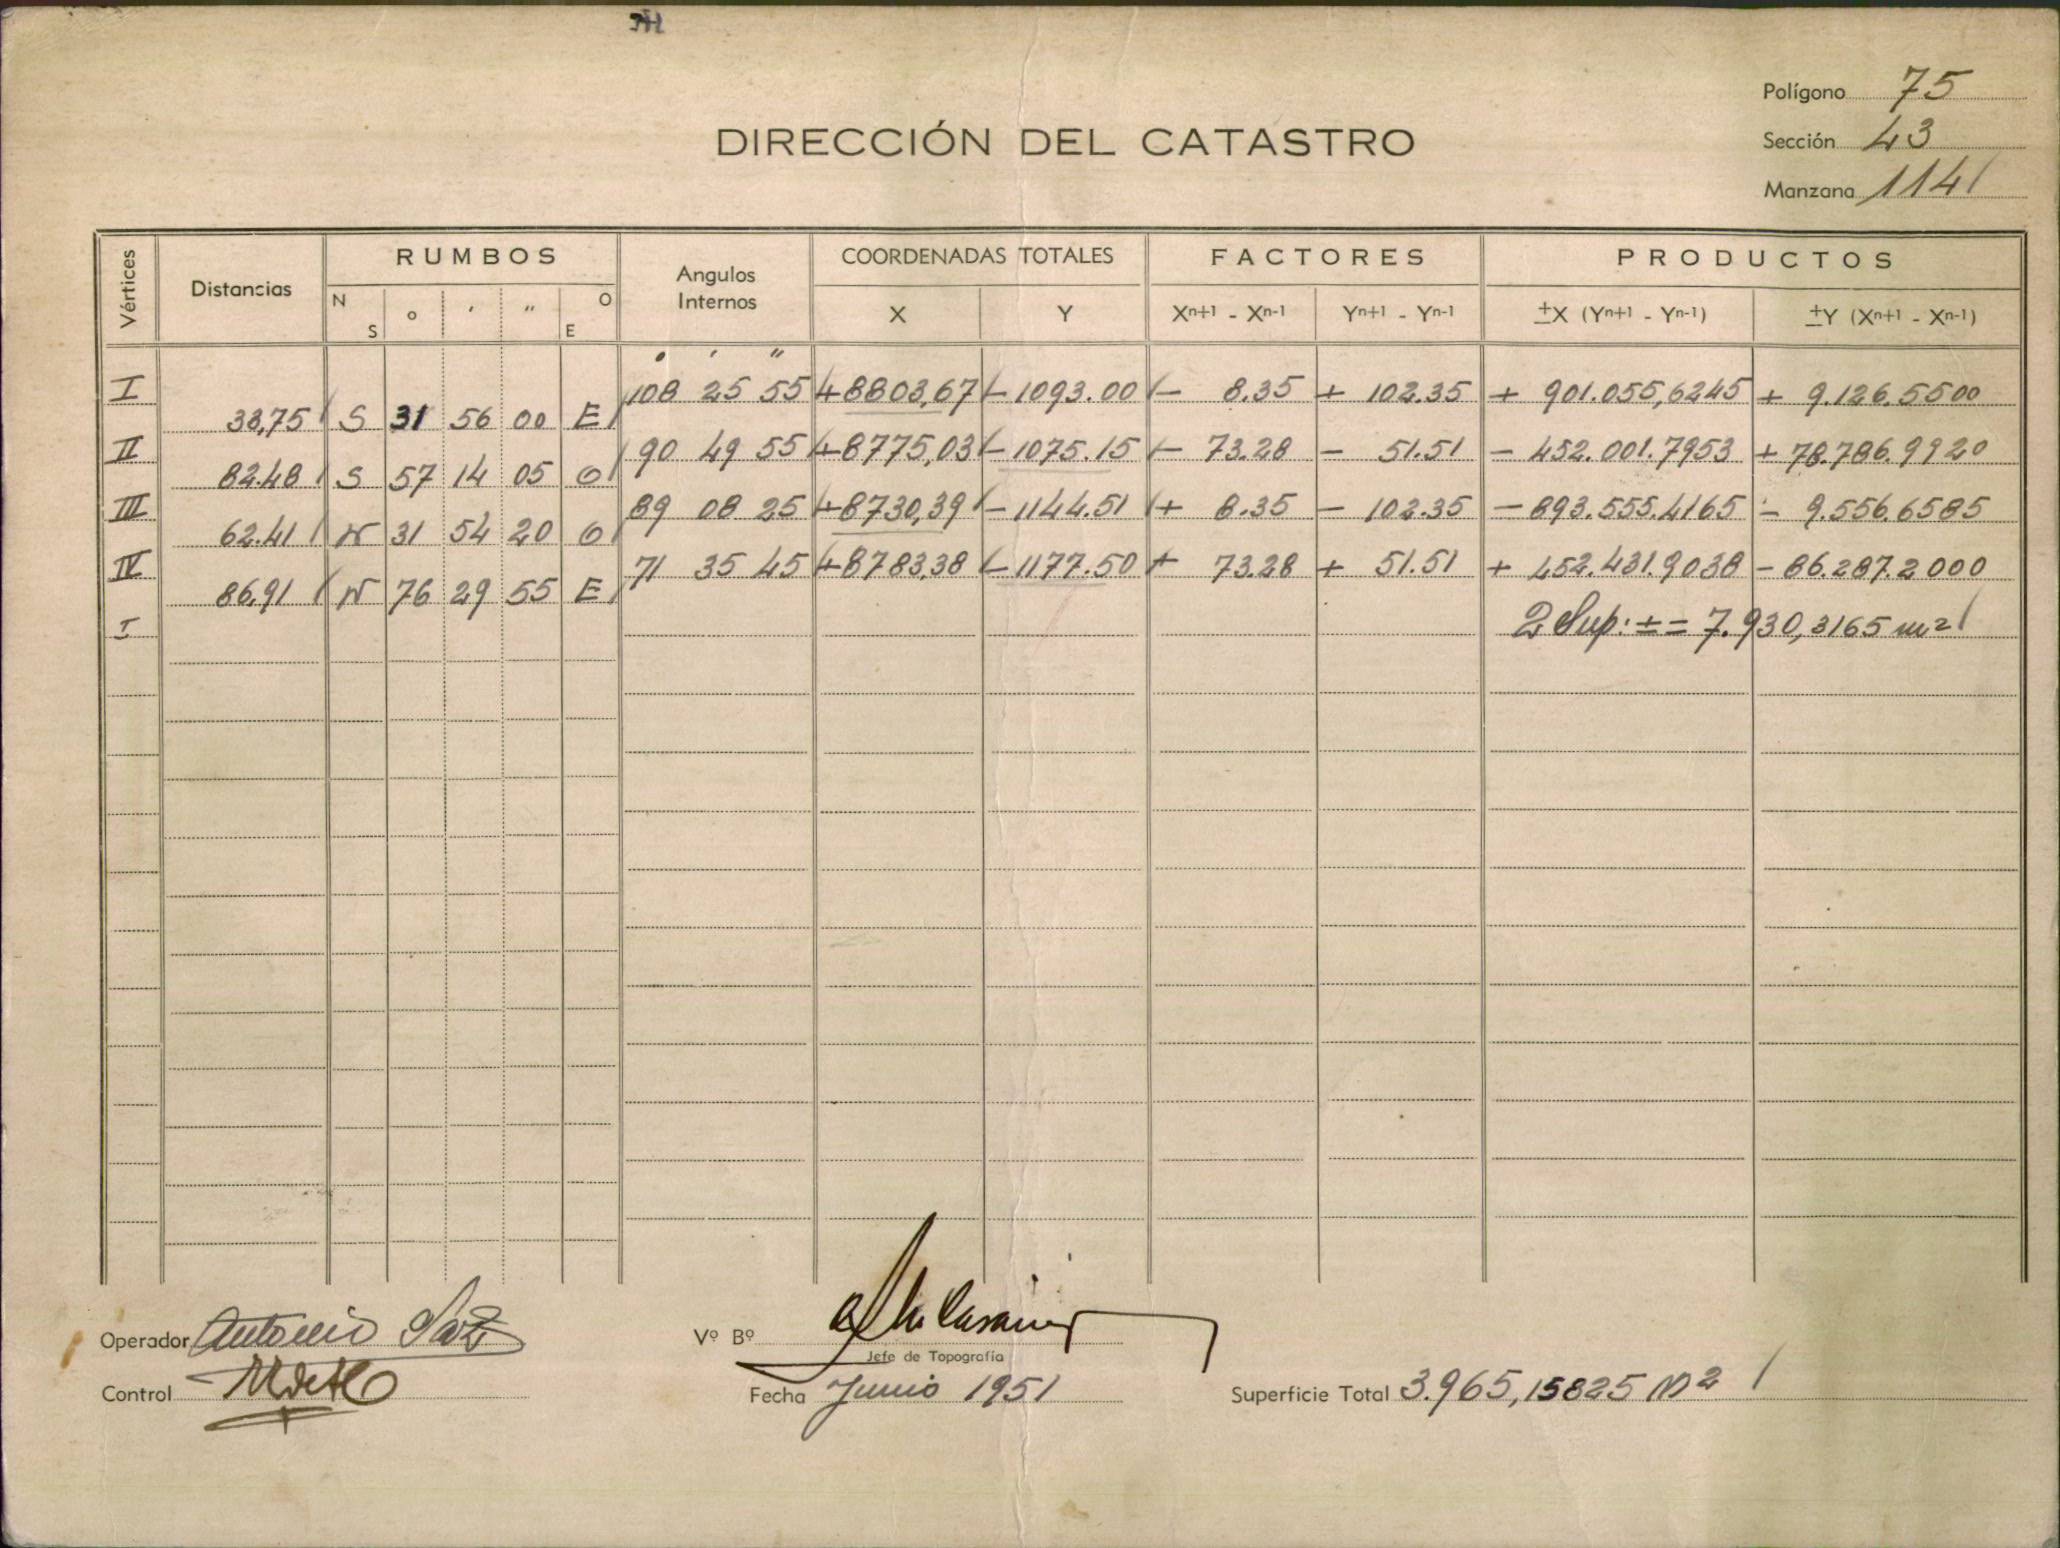 Polígono 75
DIRECCIÓN DEL CATASTRO
Sección 43
Manzana 1141
Vértices Distancias RUMBOS Angulos Internos COORDENADAS TOTALES FACTORES PRODUCTOS
N S ° ' " O E X Y Xⁿ⁺¹ - Xⁿ⁻¹ Yⁿ⁺¹ - Yⁿ⁻¹ ±X (Yⁿ⁺¹ - Yⁿ⁻¹) ±Y (Xⁿ⁺¹ - Xⁿ⁻¹)
° ' "
I 108 25 55 +8803,67 -1093.00 - 8.35 + 102.35 + 901.055,6245 + 9.126.5500
33,75 S 31 56 00 E
II 90 49 55 +8775,03 -1075.15 - 73.28 - 51.51 - 452.001.7953 + 78.786.9920
82.48 S 57 14 05 O
III 89 08 25 +8730,39 -1144.51 + 8.35 - 102.35 - 893.555.4165 - 9.556.6585
62.41 N 31 54 20 O
IV 71 35 45 +8783,38 -1177.50 + 73.28 + 51.51 + 452.431.9038 - 86.287.2000
86,91 N 76 29 55 E
I 2 Sup: ± = 7.930,3165 m²
Operador Antonio Vº Bº
Jefe de Topografía
Control Fecha Junio 1951 Superficie Total 3.965,15825 m²